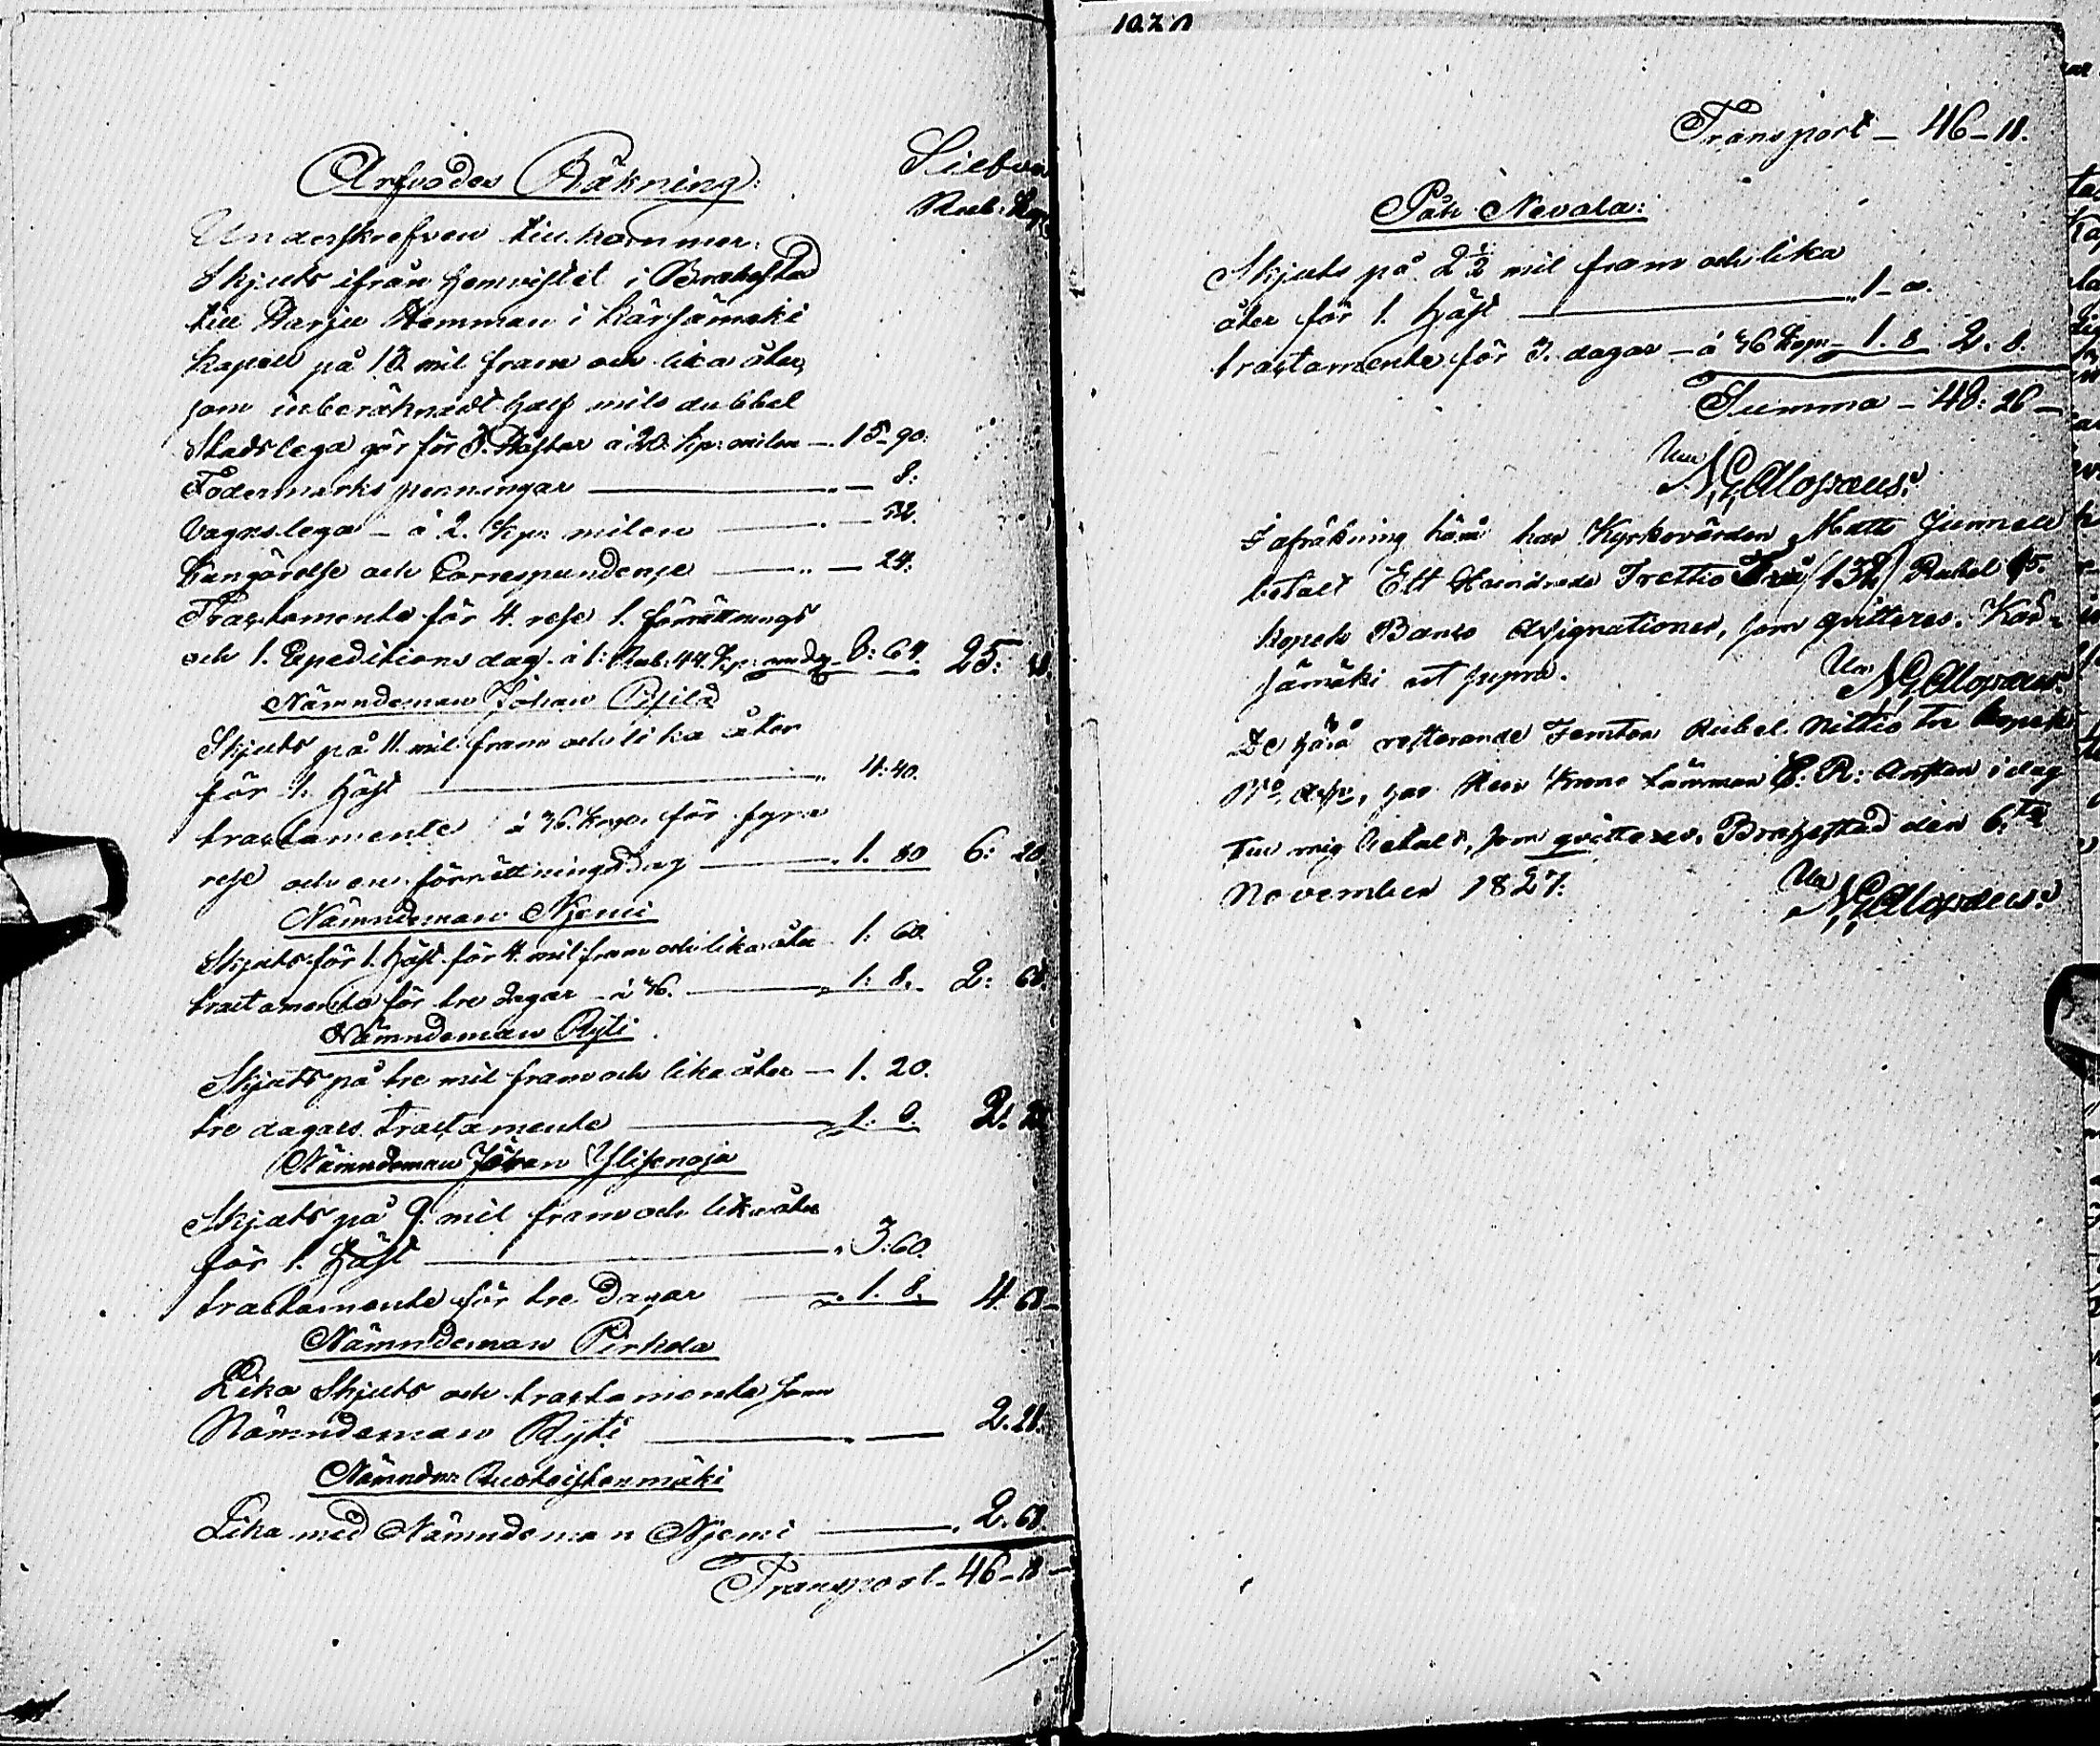 Arfvodes Räkning:
Silfver
Rub: Kop:
Underskrefven tillkommer:
Skjuts ifrån hemvistet i Brahestad
till Harju Hemman i Kärsämäki
Kapell på 13 mil fram och lika åter,
som inberäknadt half mils dubbel
Stadslega gör för 3. Hästar à 20. kp: milen — 15–90.
Fodermarks penningar — 8:
Vagnslega – à 2. Kop: milen — 52.
Kungörelse och Correspondence — 24:
Tractamente för 4. rese 1. förrättnings
och 1. Expeditions dag. à 1: Rub: 44. Kp: om dag 8: 64. 25:
Nämndeman Johan
Skjuts på 11. mil fram och lika åter
för 1. häst — 4: 40.
tractamente à 36. Kop. för fyra
rese och en förrättningsdag — 1. 80 6: 20
Nämndeman Njemi
Skjuts för 1. häst för 4. mil fram och lika åter 1: 60
tractamente för tre dagar – à 36. — 1: 8. 2: 68.
Nämndeman Ryti
Skjuts på tre mil fram och lika åter — 1. 20.
tre dagars tractamente — 1. 8. 2. 28
Nämndeman Johan Ylisenoja
Skjuts på 9. mil fram och lika åter
för 1. häst — 3: 60.
tractamente för tre dagar — 1. 8. 4. 68
Nämndeman Pirkola
Lika Skjuts och tractamente som
Nämndeman Ryti — 2. 28.
Nämndm:
Lika med Nämndeman Njemi — 2. 68.
Transport – 46 – 18 –
Transport – 46 – 18.
Nevala:
Skjuts på 2 1/2 mil fram och lika
åter för 1. häst — 1 –
tractamente för 3. dagar – à 36 Kop – 1. 8 2. 8.
Summa – 48: 26 –
N G Alopæus.
I afräkning härå har Kyrkovärden Matts Junnell
betalt Ett Hundrade Trettio Två /132/ Rubel 15.
kopek Banco Assignationer, som qvitteras. Kär-
sämäki ut supra.
N G Alopæus.
De härå resterande Femton Rubel Nittio tre kopek
B:o Ass:r, har Herr Krono Länsman C. R: i dag
till mig betalt, som qvitteres. Brahestad den 6.te
November 1827.
N G Alopæus.